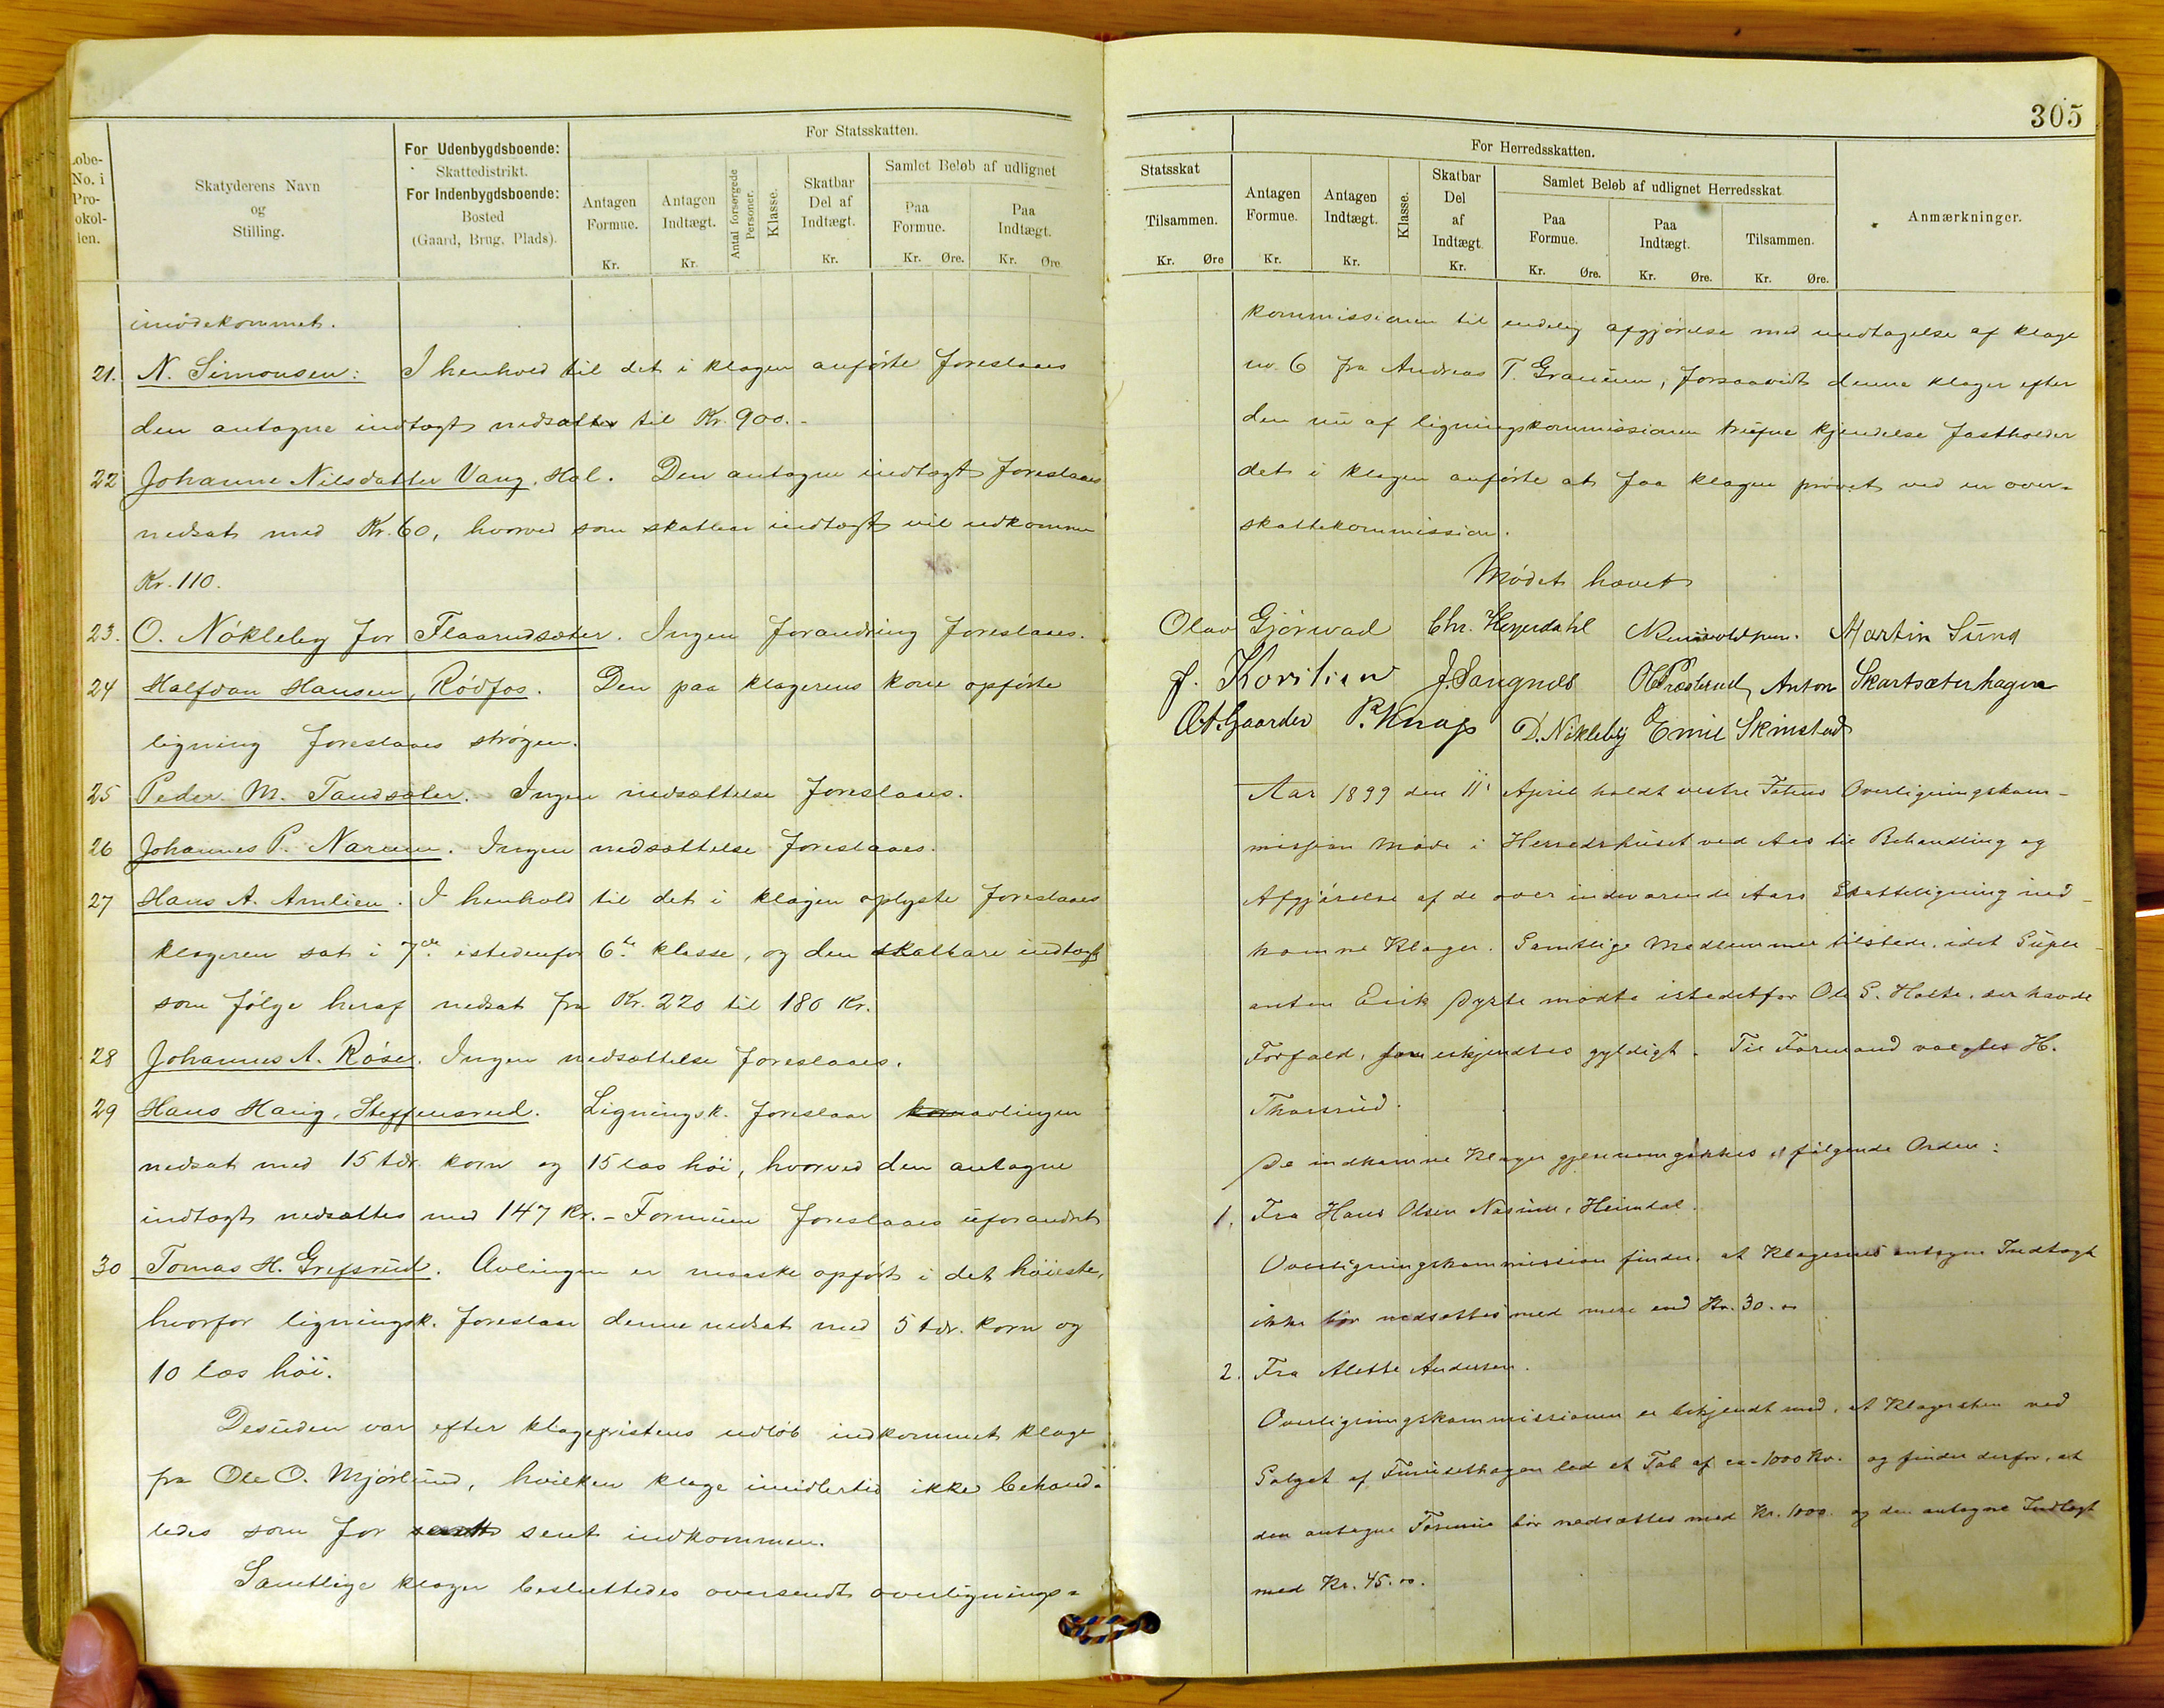 305
Løbe-
No. i
Pro-
tokol-
len.
Skatyderens Navn
og
Stilling.
For Udenbygdsboende:
Skattedistrikt.
For Indenbygdsboende:
Bosted
(Gaard, Brug, Plads).
For Statsskatten.
Antagen
Formue.
Kr.
Antagen
Indtægt.
Kr.
Antal forsørgede
Personer.
Klasse.
Skatbar
Del af
Indtægt.
Kr.
Samlet Beløb af udlignet
Paa
Formue.
Kr. Øre.
Paa
Indtægt.
Kr. Øre.
imødekommet.
21. N. Simonsen: I henhold til det i klagen anførte foreslaaes
den antagne indtægt nedsættes til Kr. 900.-
22 Johanne Nilsdatter Vang, Hol. Den antagne indtægt foreslaaes
nedsat med Kr. 60, hvorved som skatbar indtægt vil udkomme
Kr. 110.
23. O. Nøkleby for Flaarudsæter. Ingen forandring foreslaaes.
24 Halfdan Hansen, Rødfos. Den paa klagerens kone opførte
ligning foreslaaes strøgen.
25 Peder M. Sandsæter. Ingen nedsættelse foreslaaes.
26 Johannes P. Narum. Ingen nedsættelse foreslaaes.
27 Hans A. Amlien. I henhold til det i klagen oplyste foreslaaes
klageren sat i 7de istedenfor 6te klasse, og den skatbare indtægt
som følge heraf nedsat fra Kr. 220 til 180 Kr.
28 Johannes A. Røise. Ingen nedsættelse foreslaaes.
29 Hans Haug, Steffensrud. Ligningsk. foreslaar kornavlingen
nedsat med 15 tdr. korn og 15 læs høi, hvorved den antagne
indtægt nedsættes med 147 Kr. - Formuen foreslaaes uforandret
30 Tomas H. Grefsrud. Avlingen er maaske opført i det høieste,
hvorfor ligningsk. foreslaar denne nedsat med 5 tdr. korn og
10 læs høi.
Desuden var efter klagefristens udløb indkommet klage
fra Ole O. Mjørlund, hvilken klage imidlertid ikke behand-
ledes som for sent indkommen.
Samtlige klager besluttedes oversendt overlignings-
Statsskat
Tilsammen.
Kr. Øre
For Herredsskatten.
Antagen
Formue.
Kr.
Antagen
Indtægt.
Kr.
Klasse.
Skatbar
Del
af
Indtægt.
Kr.
Samlet Beløb af udlignet Herredsskat.
Paa
Formue.
Kr. Øre.
Paa
Indtægt.
Kr. Øre.
Tilsammen.
Kr. Øre.
Anmærkninger.
kommissionen til endelig afgjørelse med undtagelse af klage
no. 6 fra Andreas T. Granum, forsaavidt denne klager efter
den nu af ligningskommissionen trufne kjendelse fastholder
det i klagen anførte at faa klagen prøvet ved en over-
skattekommission.
Mødet hævet
Olav Gjørvad Chr. Heyerdahl Martin Sund
J. Sangnæs Anton Skartsæterhagen
O. A. Gaarder P. Knap D. Nøkleby Emil Skinstad
Aar 1899 den 11. April holdt vestre Totens Overligningskom-
mission Møde i Herredshuset ved Aas til Behandling og
Afgjørelse af de over indeværende Aars Skatteligning ind-
komne Klager. Samtlige Medlemmer tilstede, idet Suple-
anten Erik Dyste mødte istedetfor Ole G. Holte, der havde
Forfald, som erkjendtes gyldigt. Til Formand valgtes H.
Thorsrud.
De indkomne Klager gjennemgikkes i følgende Orden:
1. Fra Hans Olsen Næsum, Heimdal.
Overligningskommission finder, at Klagerens antagne Indtægt
ikke bør nedsættes med mere end Kr. 30.00
2. Fra Alette Andersen.
Overligningskommissionen er bekjendt med, at Klagersken ved
Salget af Furusethagen led et Tab af ca. 1000 Kr. og finder derfor, at
den antagne Formue bør nedsættes med Kr. 1000. og den antagne Indtægt
med Kr. 45.00.